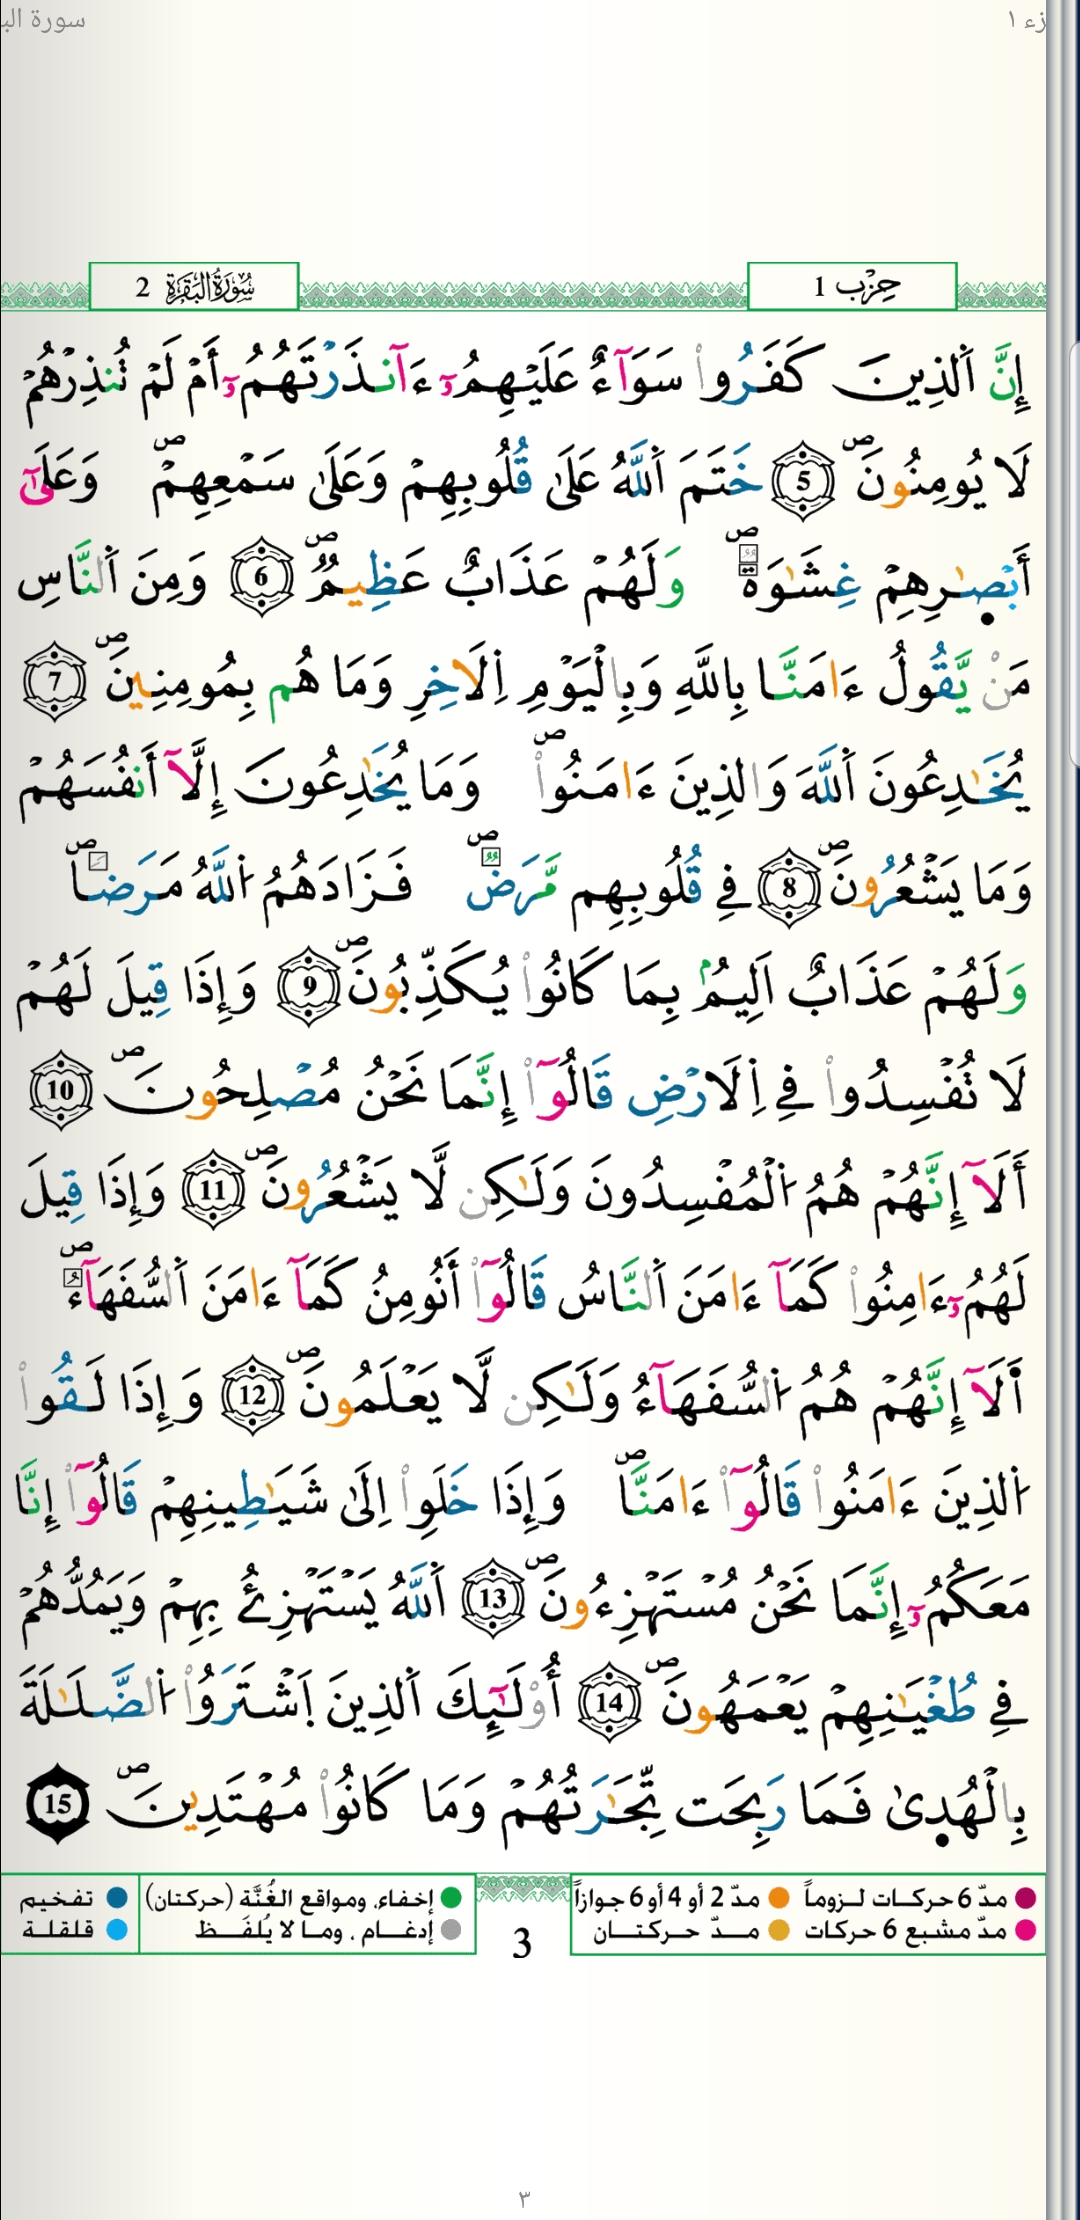 زء ١
سورة الب
حِزْب 1
سُورَةُ الْبَقَرَةِ 2
إِنَّ اَ۬لذِينَ كَفَرُواْ سَوَآءٌ عَلَيْهِمُۥٓ ءَآنذَرْتَهُمُۥٓ أَمْ لَمْ تُنذِرْهُمْ
لَا يُومِنُونَۖ 5 خَتَمَ اَ۬للَّهُ عَلَىٰ قُلُوبِهِمْ وَعَلَىٰ سَمْعِهِمْۖ وَعَلَىٰٓ
أَبْصٰ۪رِهِمْ غِشَٰوَةٞۖ وَلَهُمْ عَذَابٌ عَظِيمٞۖ 6 وَمِنَ اَ۬لنَّاسِ
مَنْ يَّقُولُ ءَامَنَّا بِاللَّهِ وَبِالْيَوْمِ اِ۬لَاخِرِ وَمَا هُم بِمُومِنِينَۖ 7
يُخَٰدِعُونَ اَ۬للَّهَ وَالذِينَ ءَامَنُواْۖ وَمَا يُخَٰدِعُونَ إِلَّآ أَنفُسَهُمْ
وَمَا يَشْعُرُونَۖ 8 فِے قُلُوبِهِم مَّرَضٞۖ فَزَادَهُمُ اُ۬للَّهُ مَرَضاٗۖ
وَلَهُمْ عَذَابٌ اَلِيمُۢ بِمَا كَانُواْ يُكَذِّبُونَۖ 9 وَإِذَا قِيلَ لَهُمْ
لَا تُفْسِدُواْ فِے اِ۬لَارْضِ قَالُوٓاْ إِنَّمَا نَحْنُ مُصْلِحُونَۖ 10
أَلَآ إِنَّهُمْ هُمُ اُ۬لْمُفْسِدُونَ وَلَٰكِن لَّا يَشْعُرُونَۖ 11 وَإِذَا قِيلَ
لَهُمُۥٓ ءَامِنُواْ كَمَآ ءَامَنَ اَ۬لنَّاسُ قَالُوٓاْ أَنُومِنُ كَمَآ ءَامَنَ اَ۬لسُّفَهَآءُۖ
أَلَآ إِنَّهُمْ هُمُ اُ۬لسُّفَهَآءُ وَلَٰكِن لَّا يَعْلَمُونَۖ 12 وَإِذَا لَقُواْ
اُ۬لذِينَ ءَامَنُواْ قَالُوٓاْ ءَامَنَّاۖ وَإِذَا خَلَوِاْ اِلَىٰ شَيَٰطِينِهِمْ قَالُوٓاْ إِنَّا
مَعَكُمُۥٓ إِنَّمَا نَحْنُ مُسْتَهْزِءُونَۖ 13 اَ۬للَّهُ يَسْتَهْزِئُ بِهِمْ وَيَمُدُّهُمْ
فِے طُغْيَٰنِهِمْ يَعْمَهُونَۖ 14 أُوْلَٰٓئِكَ اَ۬لذِينَ اَ۪شْتَرَوُاْ اُ۬لضَّلَٰلَةَ
بِالْهُد۪ىٰ فَمَا رَبِحَت تِّجَٰرَتُهُمْ وَمَا كَانُواْ مُهْتَدِينَۖ 15
مدّ 6 حركـات لـزوماً
مدّ 2 أو 4 أو 6 جوازاً
إخفاء، ومواقع الغُنَّة (حركتان)
تفخيم
مدّ مشبع 6 حركات
مــدّ حـركتــان
إدغــام ، ومـا لا يُلفَــظ
قلقلـة
3
٣